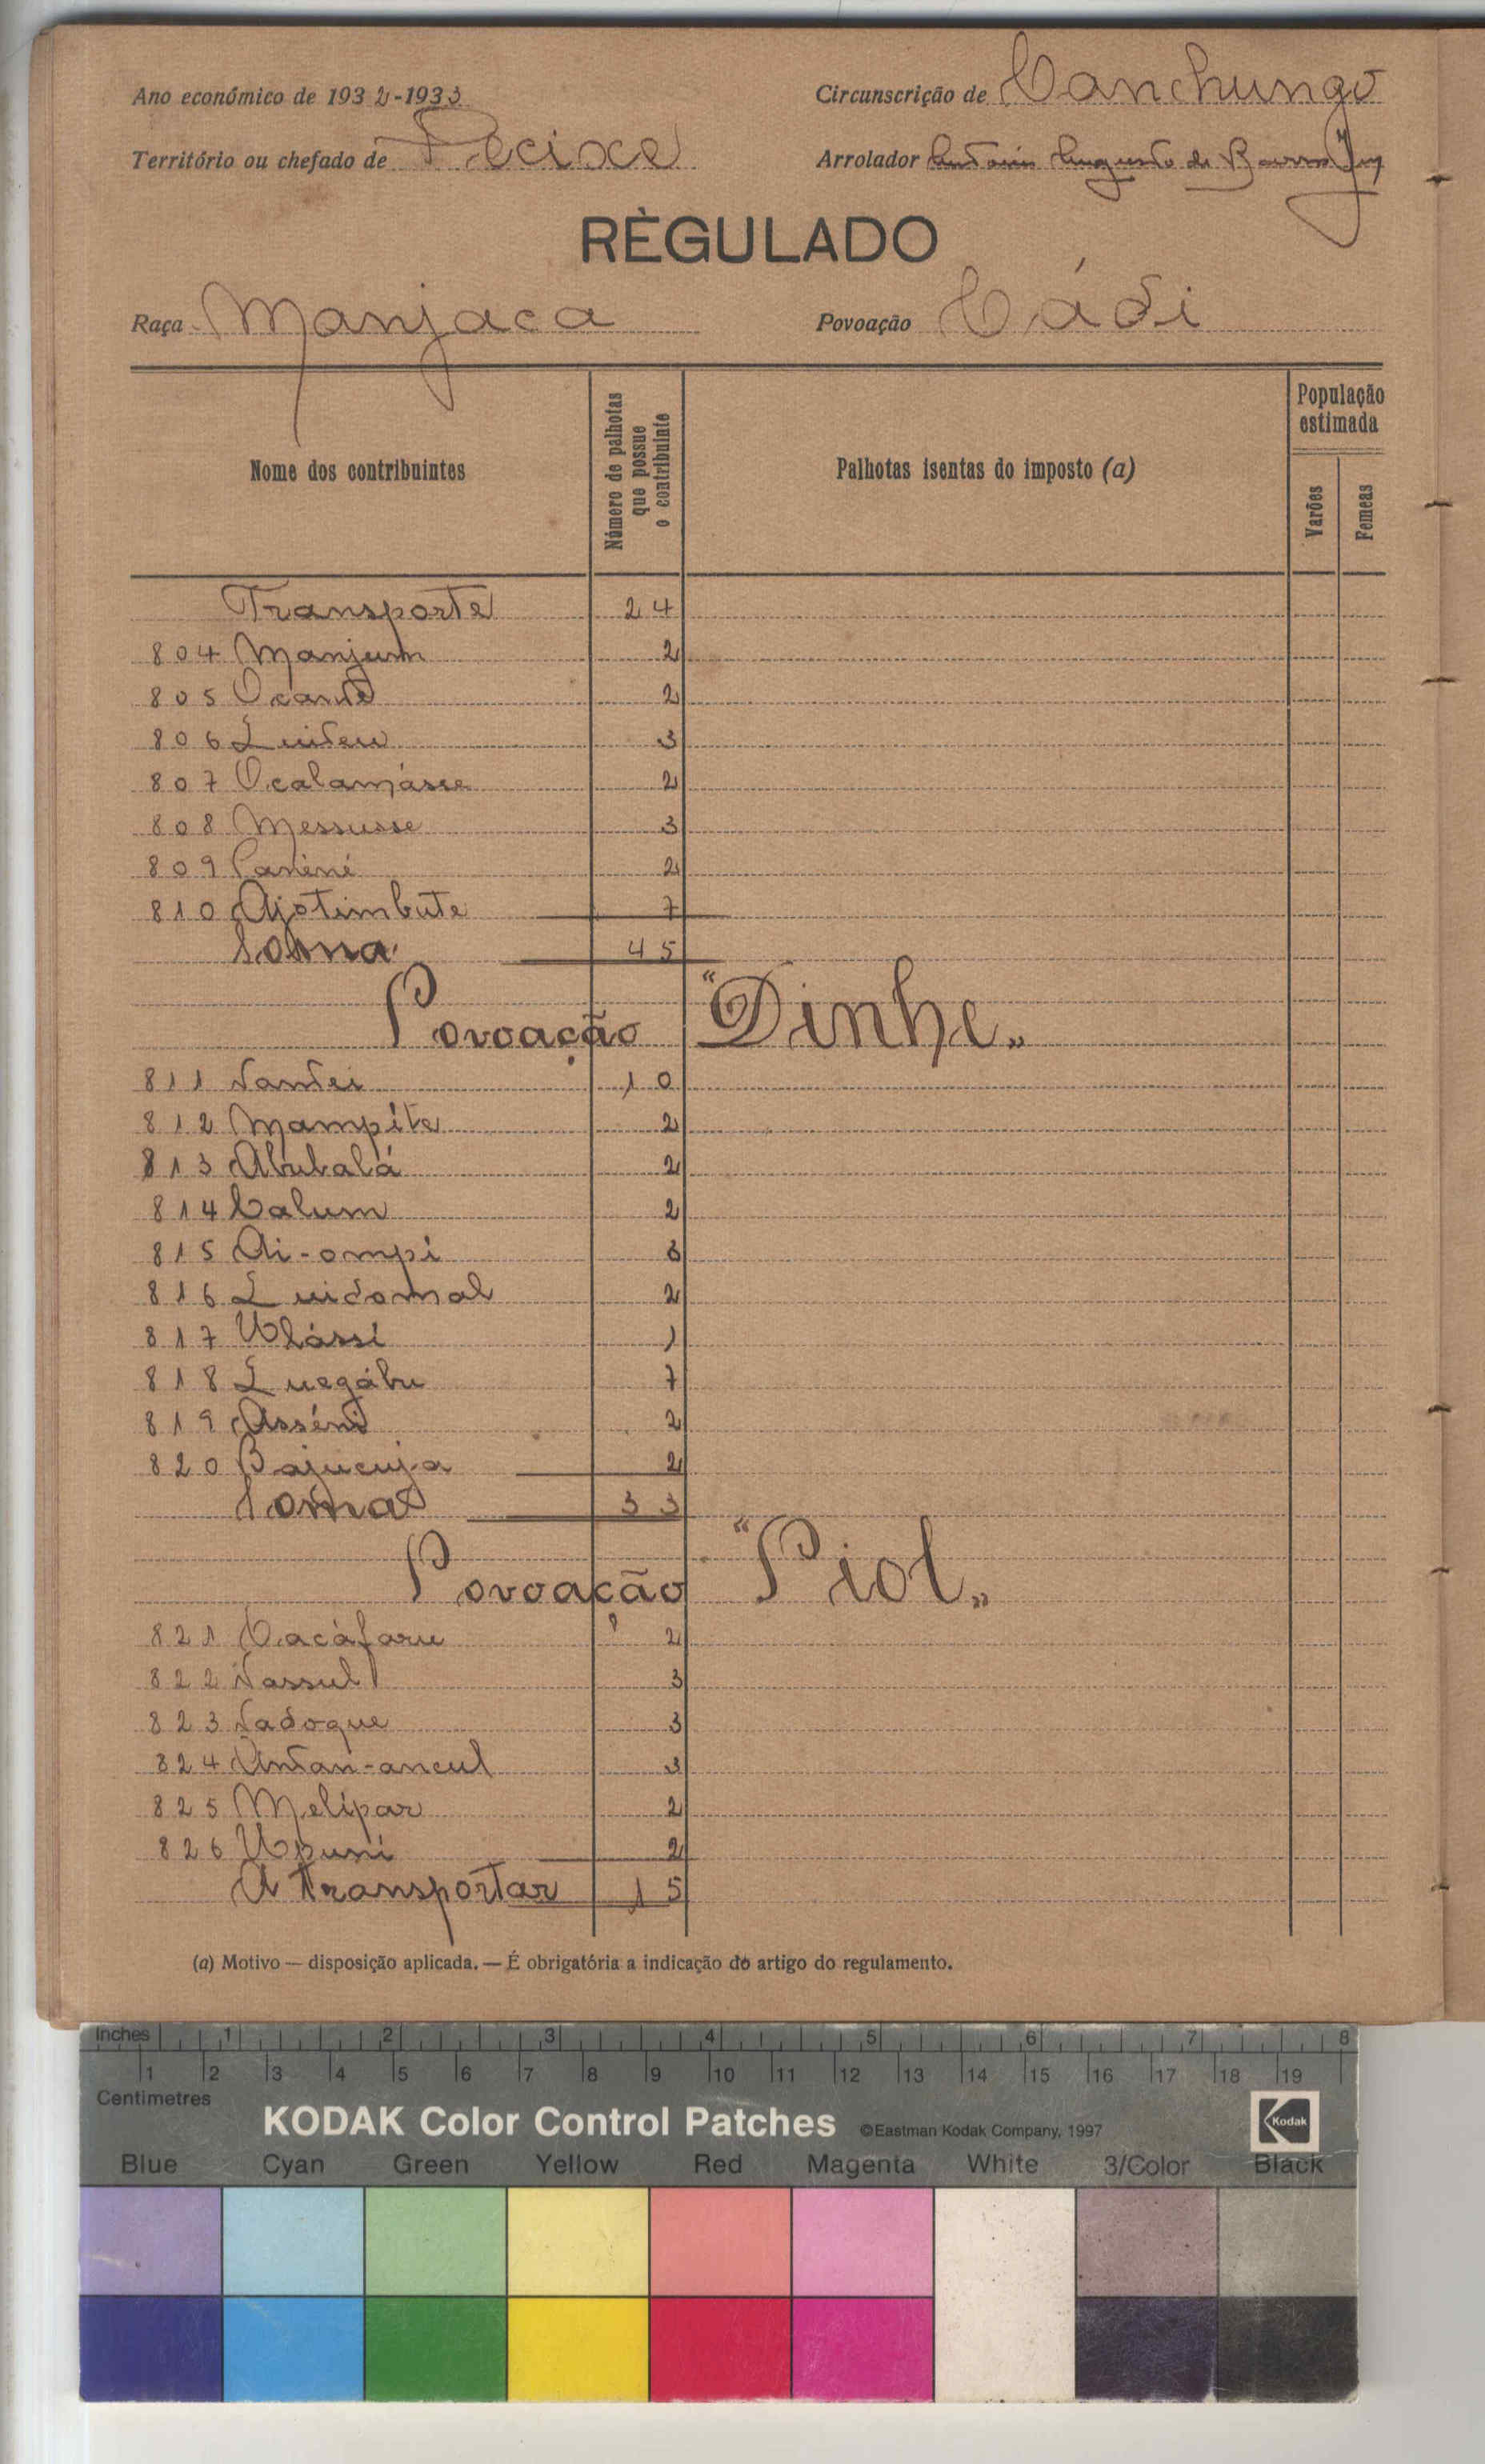 Ano económico de 1932-1933
Circunscrição de Canchungo
Território ou chefado de Pecixe
Arrolador Antonio Augusto de Barros Jor
RÈGULADO
Raça Manjaca
Povoação Cádi
Nome dos contribuintes
Número de palhotas que possue o contribuinte
Palhotas isentas do imposto (a)
População estimada
Varões
Femeas
Transporte 24
804 Manjum 2
805 Ocante 2
806 Luiteu 3
807 Ocalamásse 2
808 Messusse 3
809 Caniné 2
810 Ajotimbute 7
Soma 45
Povoação "Dinhe"
811 Nantei 10
812 Mampíte 2
813 Abubalá 2
814 Calum 2
815 Ai-ompi 3
816 Luidomal 2
817 Ulássi 1
818 Luegábu 7
819 Asséni 2
820 Bajucuja 2
Soma 33
Povoação "Piol"
821 Cacáfaru 2
822 Nassul 3
823 Nadoque 3
824 Untan-ancul 3
825 Melípar 2
826 Upuni 2
A Transportar 15
(a) Motivo — disposição aplicada. — É obrigatória a indicação do artigo do regulamento.
Inches 1 2 3 4 5 6 7 8
1 2 3 4 5 6 7 8 9 10 11 12 13 14 15 16 17 18 19
Centimetres
KODAK Color Control Patches ©Eastman Kodak Company, 1997 Kodak
Blue Cyan Green Yellow Red Magenta White 3/Color Black